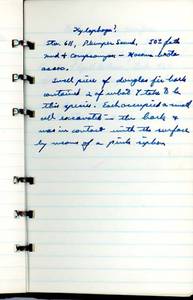 Xylophaga?
Sta. 611, Plumper Sound, 50± fath
mud & Compsomyax – Macoma
assoc.
Small piece of douglas fir bark
contained 2 of what I take to be
this species. Each occupied a small
cell excavated in the bark &
was in contact with the surface
by means of a pink siphon